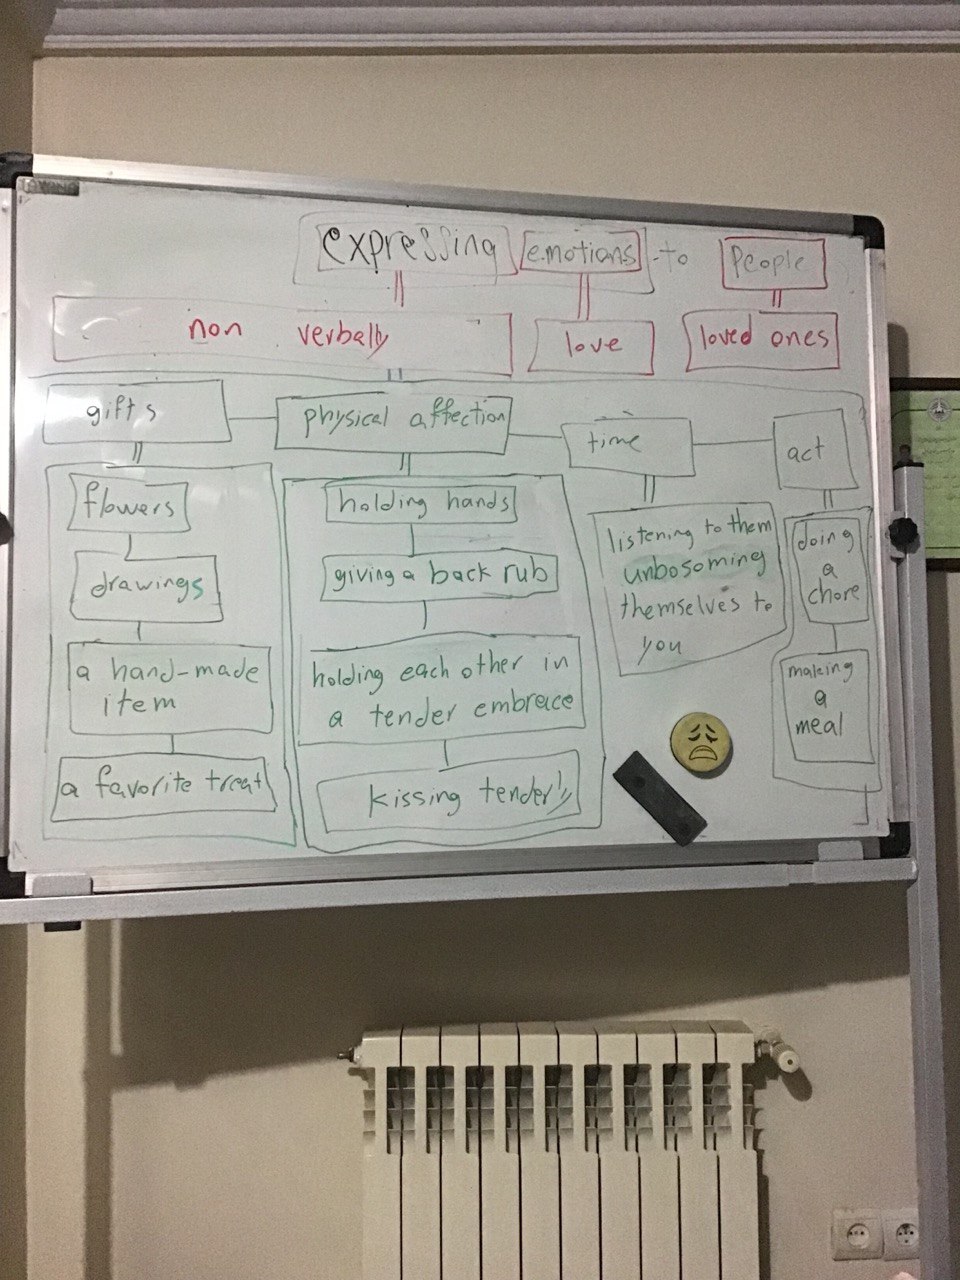 expressing emotions to People
non verbally love loved ones
gifts physical affection time act
flowers
drawings
a hand-made
item
a favorite treat
holding hands
giving a back rub
holding each other in
a tender embrace
kissing tenderly
listening to them
unbosoming
themselves to
you
doing
a
chore
making
a
meal